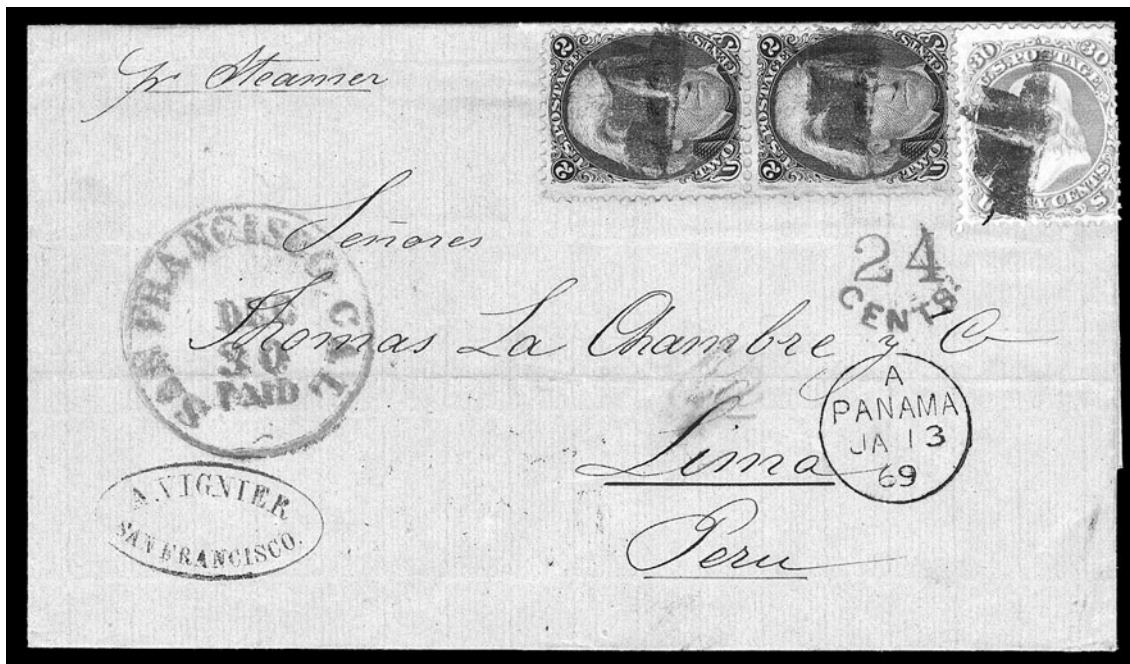 pr Steamer
2 U.S. POSTAGE TWO CENTS 2
2 U.S. POSTAGE TWO CENTS 2
30 U.S. POSTAGE 30
TY CENTS
Señores
Thomas La Chambre y Co
Lima
Peru
SAN FRANCISCO. CAL
DEC
30
PAID
24
CENTS
A
PANAMA
JA 13
69
A. VIGNIER
SAN FRANCISCO.